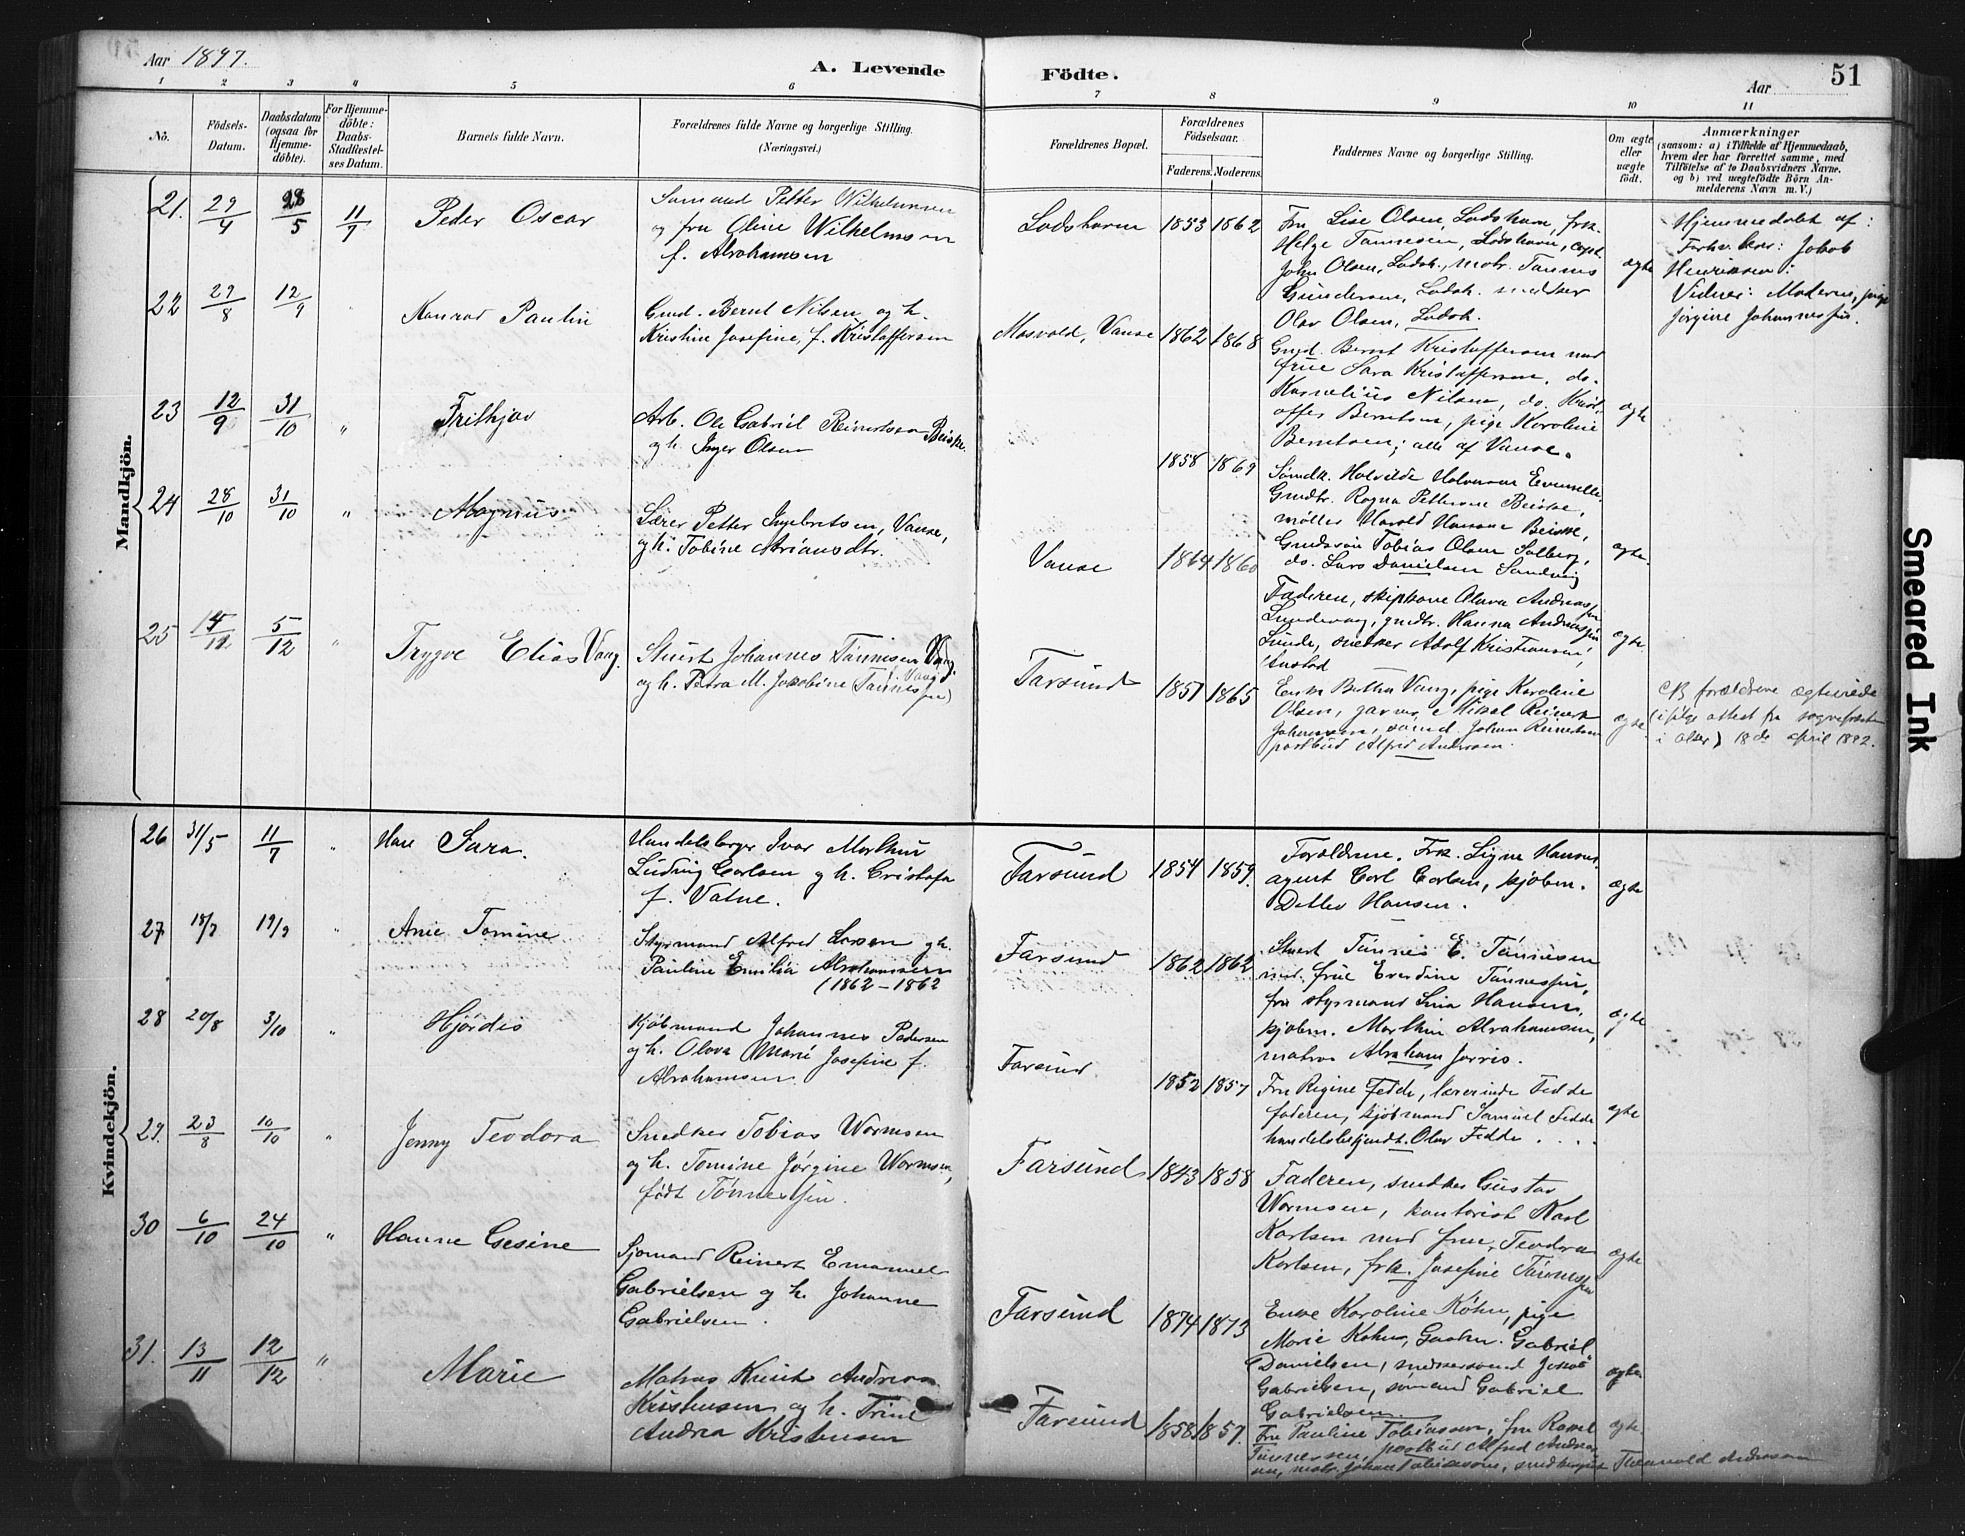 Aar 1897.
A. Levende
Födte.
Aar
51
1 2 3 4 5 6 7 8 9 10 11
Nö.
Födsels-
Datum.
Daabsdatum
(ogsaa for
Hjemme-
döbte).
For Hjemme-
döbte:
Daabs-
Stadfæstel-
ses Datum.
Barnets fulde Navn.
Forældrenes fulde Navne og borgerlige Stilling.
(Næringsvei.)
Forældrenes Bopæl.
Forældrenes
Födselsaar.
Faderens. Moderens.
Faddernes Navne og borgerlige Stilling.
Om ægte
eller
uægte
födt.
Anmærkninger
(saasom: a) i Tilfælde af Hjemmedaab,
hvem der har forrettet samme, med
Tilföielse af to Daabsvidners Navne.
og b) ved uægtefödte Börn An-
melderens Navn m. V.)
Mandkjön.
21. 29/4 28/5 11/7 Peder Oscar
Sømand Petter Wilhelmsen
og fru Oline Wilhelmsen
f. Abrahamsen
Lodshavn 1853 1862
Fru Lise Olsen, Lodshavn, frk.
Helge Tannesen, Lodshavn, capt.
John Olsen, Lodsh., matr. Tønnes
Gundersen, Lodsh. snedker
Olav Olsen, Lodsh.
ægte
Hjemmedøbt af:
Jakob
Henriksen:
Vidner: Moderen, pige
Jørgine Johannessen.
22 27/8 12/9 " Konrad Paulin
Gmd. Bernt Nilsen og h.
Kristine Josefine, f. Kristoffersen
Mosvold, Vanse 1862 1868
Gmd. Bernt Kristoffersen med
frue Sara Kristoffersen, do.
Kornelius Nilsen, do. Krist-
offer Berntsen, pige Karoline
Berntsen; alle af Vanse.
ægte
23 12/9 31/10 " Frithjov
Arb. Ole Gabriel Reinertsen Beiske
og h. Inger Olsen
1858 1869
Ragna Pettersen Beiske,
møller Harald Hansen Beiske,
Gmdsøn Tobias Olsen Solberg,
do. Lars Danielsen Sandvig
ægte.
24 28/10 31/10 " Magnus
Lærer Petter Ingebretsen, Vanse,
og h. Tobine Adriansdtr.
Vanse 1864 1860
Faderen, skipkone Olava Andreassen
Lundevaag, gmdtr. Hanna Andreassen
Lunde, snedker Adolf Kristiansen,
ægte.
25 14/11 5/12 " Trygve Elias Vaag.
Stuert Johannes Tønnesen Vaag.
og h. Petra M. Jakobine (Tønnessen)
Farsund 1851 1865
Enke Bertha Vaag, pige Karoline
Olsen, garver Mikal Reinert
Johansen, sømd. Johan Reinertsen
postbud Alfred Andersen.
ægte
NB forældrene ægteviede
(ifølge attest fra sognepræsten
i Olso) 18de april 1892.
Kvindekjön.
26 31/5 11/7 " Sara.
Handelsborger Ivar Marthin
Ludvig Carlsen og h. Cristofa
f. Vatne.
Farsund 1854 1859.
Forældrene. Frk. Signe Hansen
agent Carl Carlsen, kjøbm.
Detlev Hansen.
ægte
27 18/7 19/9 " Anie Tomine
Styrmand Alfred Larsen og h.
Pauline Emilie Abrahamsen
(1862-1862
Farsund 1862 1862
Stuert Tønnes E. Tønnesen
med frue Everdine Tønnessen,
fru styrmand Lina Hansen,
kjøbm. Marthin Abrahamsen,
matros Abraham Jarris.
ægte
28 20/8 3/10 " Hjørdis
Kjøbmand Johannes Pedersen
og h. Olava Marie Josefine f.
Abrahamsen.
Farsund 1852 1857
Fru Regine Fedde, lærerinde Fedde
faderen, kjøbmand Samuel Fedde
handelsbetjendt. Olav Fedde....
ægte
29. 23/8 10/10 " Jenny Teodora
Snedker Tobias Wormsen
og h. Tomine Jørgine Wormsen,
født Tønnessen.
Farsund 1843 1858
Faderen, snedker Gustav
Wormsen, kontorist Karl
Karlsen med frue, Teodora
Karlsen, frk. Josefine Tønnessen
ægte
30 6/10 24/10 " Hanne Gesine
Sjømand Reinert Emanuel
Gabrielsen og h. Johanne
Gabrielsen.
Farsund 1874 1873
Enke Karoline Køhn, pige
Marie Køhn, Gabriel
Danielsen, snedkersvend Jakob
Gabrielsen, sømand Gabriel
Gabrielsen
ægte
31. 13/11 12/12 " Marie
Matros Knut Andreas
Kristensen og h. Trine
Andrea Kristensen
Farsund 1858 1857.
Fru Pauline Tobiassen, fru Rakel
Tønnessen, postbud Alfred Andersen
ægte.
Smeared Ink